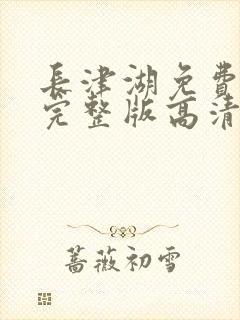 長津湖免費
完整版高清
蔷薇初雪